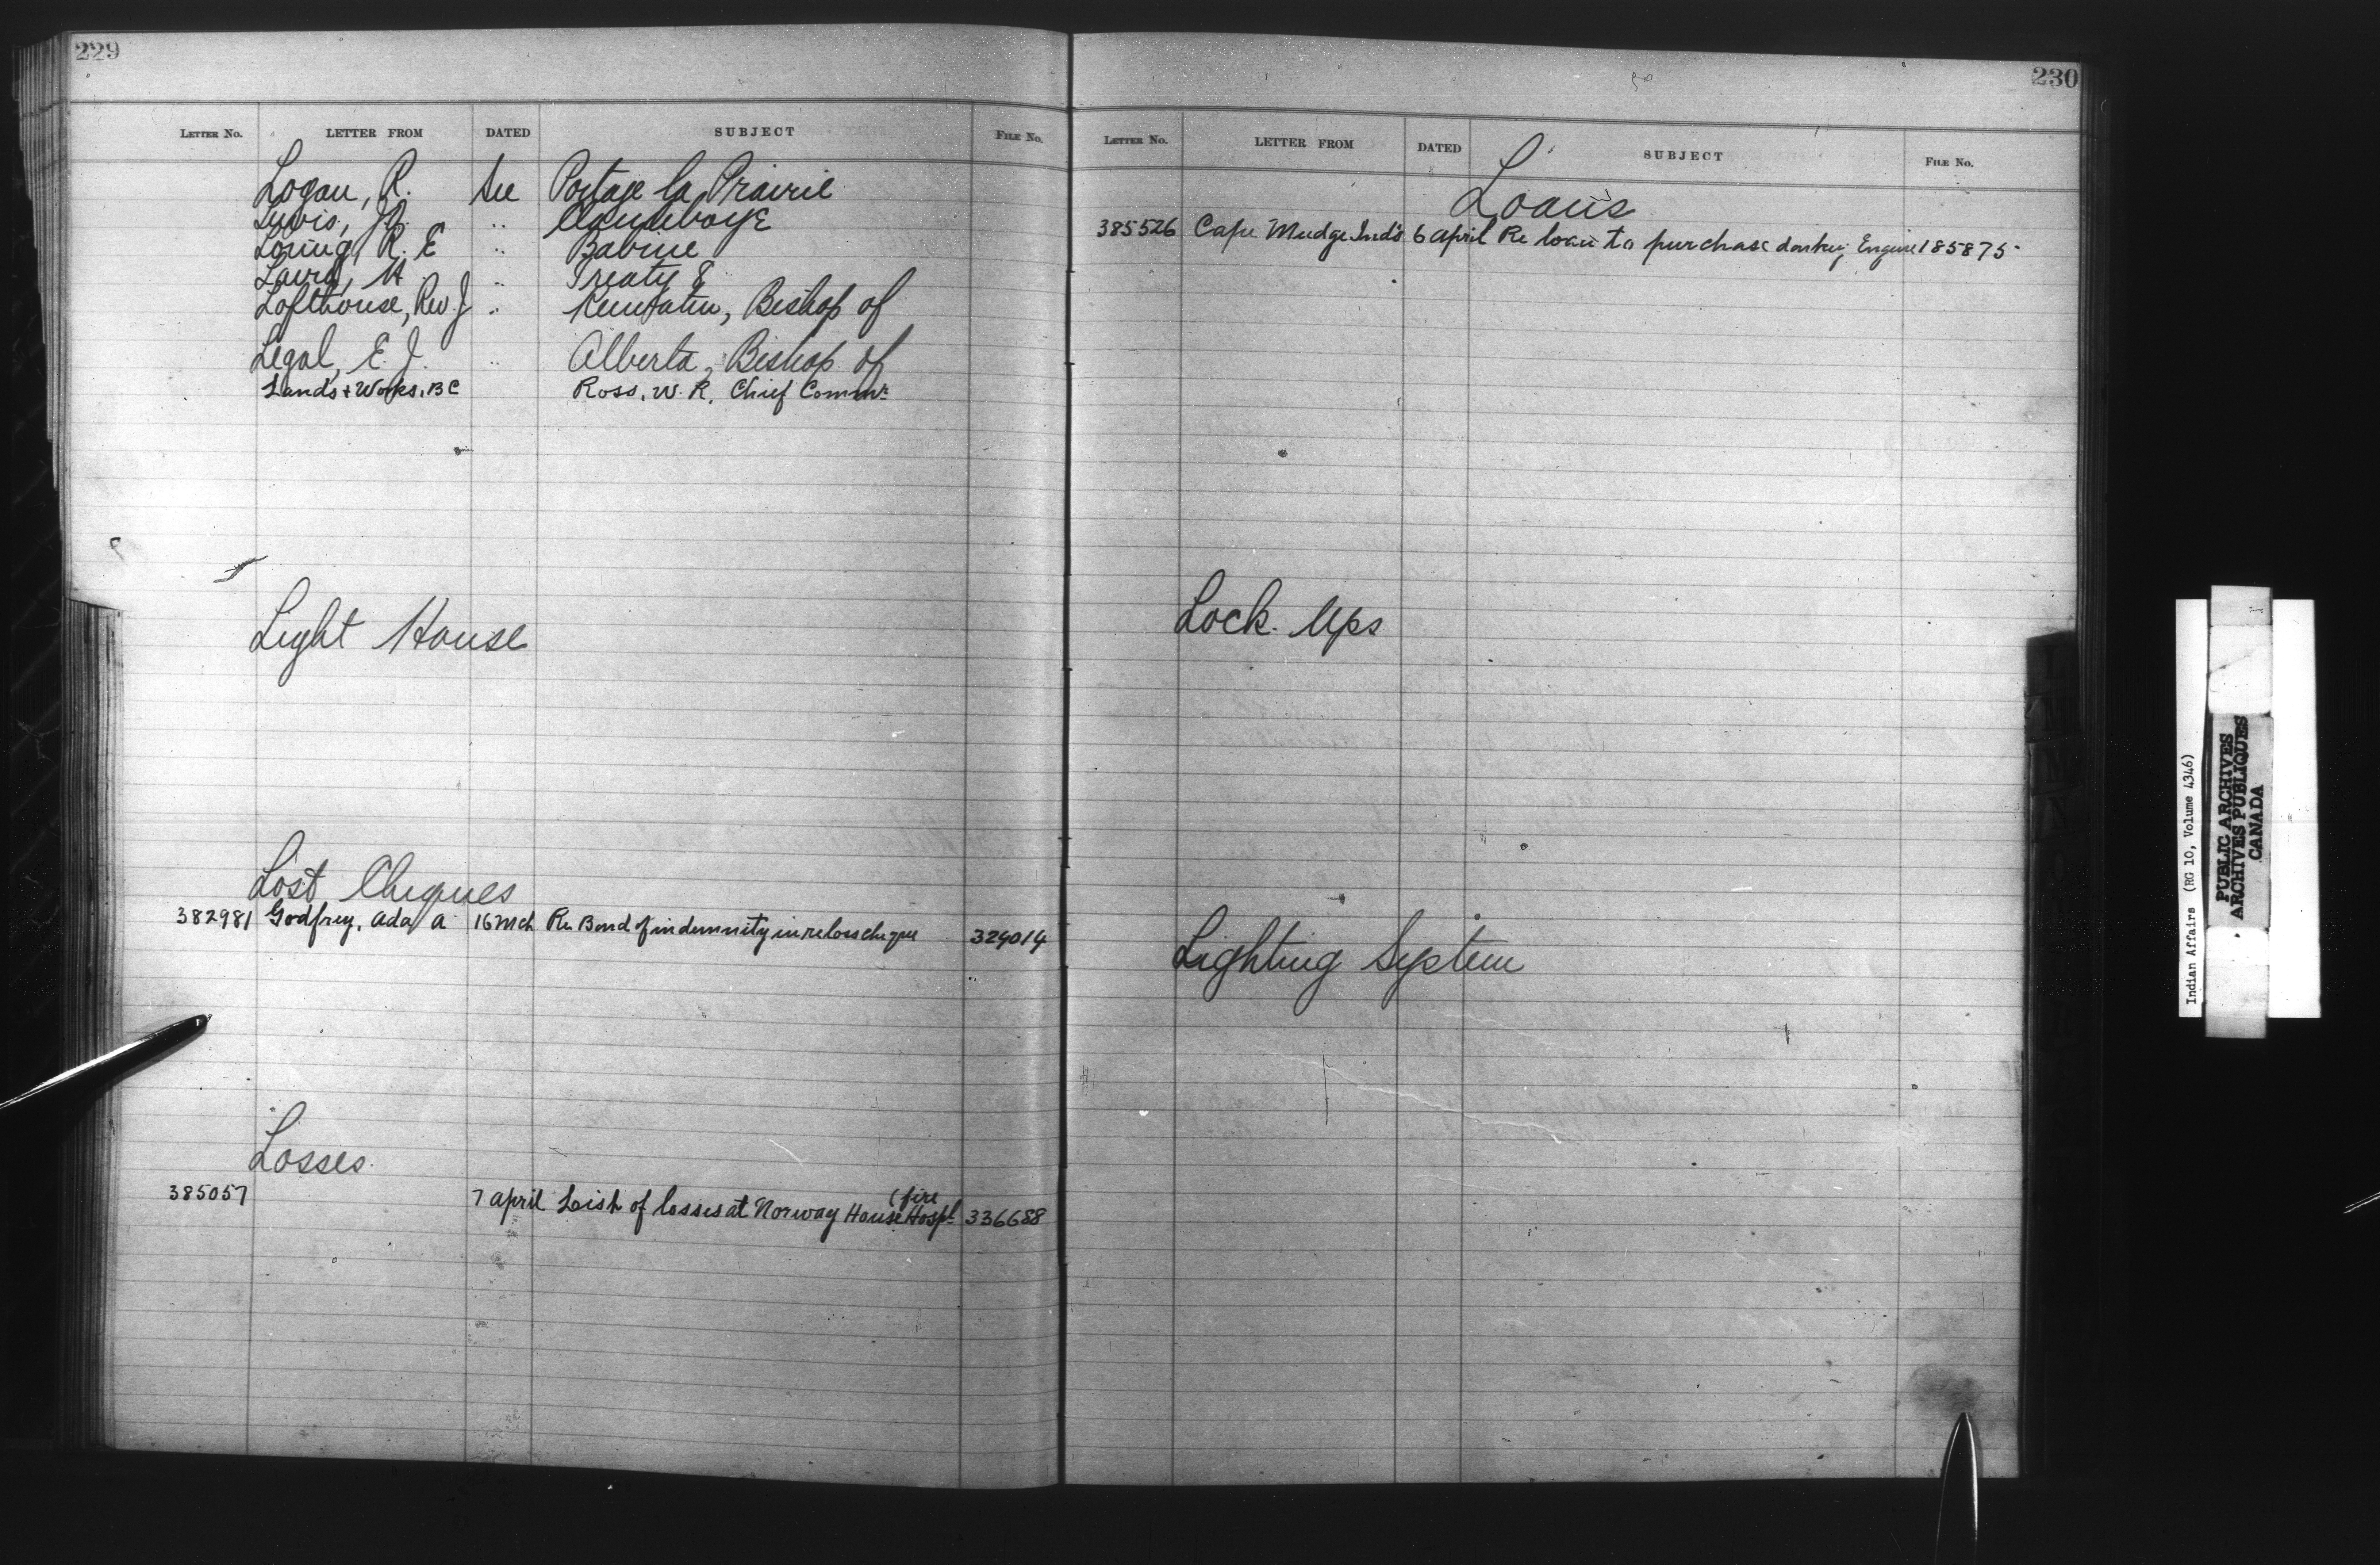 229
LETTER No. LETTER FROM DATED SUBJECT FILE No.
Logan, R. See Portage la Prairie
Lewis, J. .. Clandeboye
Loring, R. E .. Babine
Laird, H .. Treaty 8
Lofthouse, Rev. J .. Keewatin, Bishop of
Legal, E. J. .. Alberta, Bishop of
Lands + Works, B C Ross, W. R. Chief Commr
Light House
Lost Cheques
382981 Godfrey, Ada A 16 Mch Re Bond of indemnity in re loss cheque 324014
Losses
385057 7 April List of losses at Norway House (fire Hospl 336688
230
LETTER No. LETTER FROM DATED SUBJECT FILE No.
Loans
385526 Cape Mudge Inds 6 April Re loan to purchase donkey Engine 185875
Lock-Ups
Lighting System
L
M
N
Indian Affairs (RG 10, Volume 4346)
PUBLIC ARCHIVES
ARCHIVES PUBLIQUES
CANADA